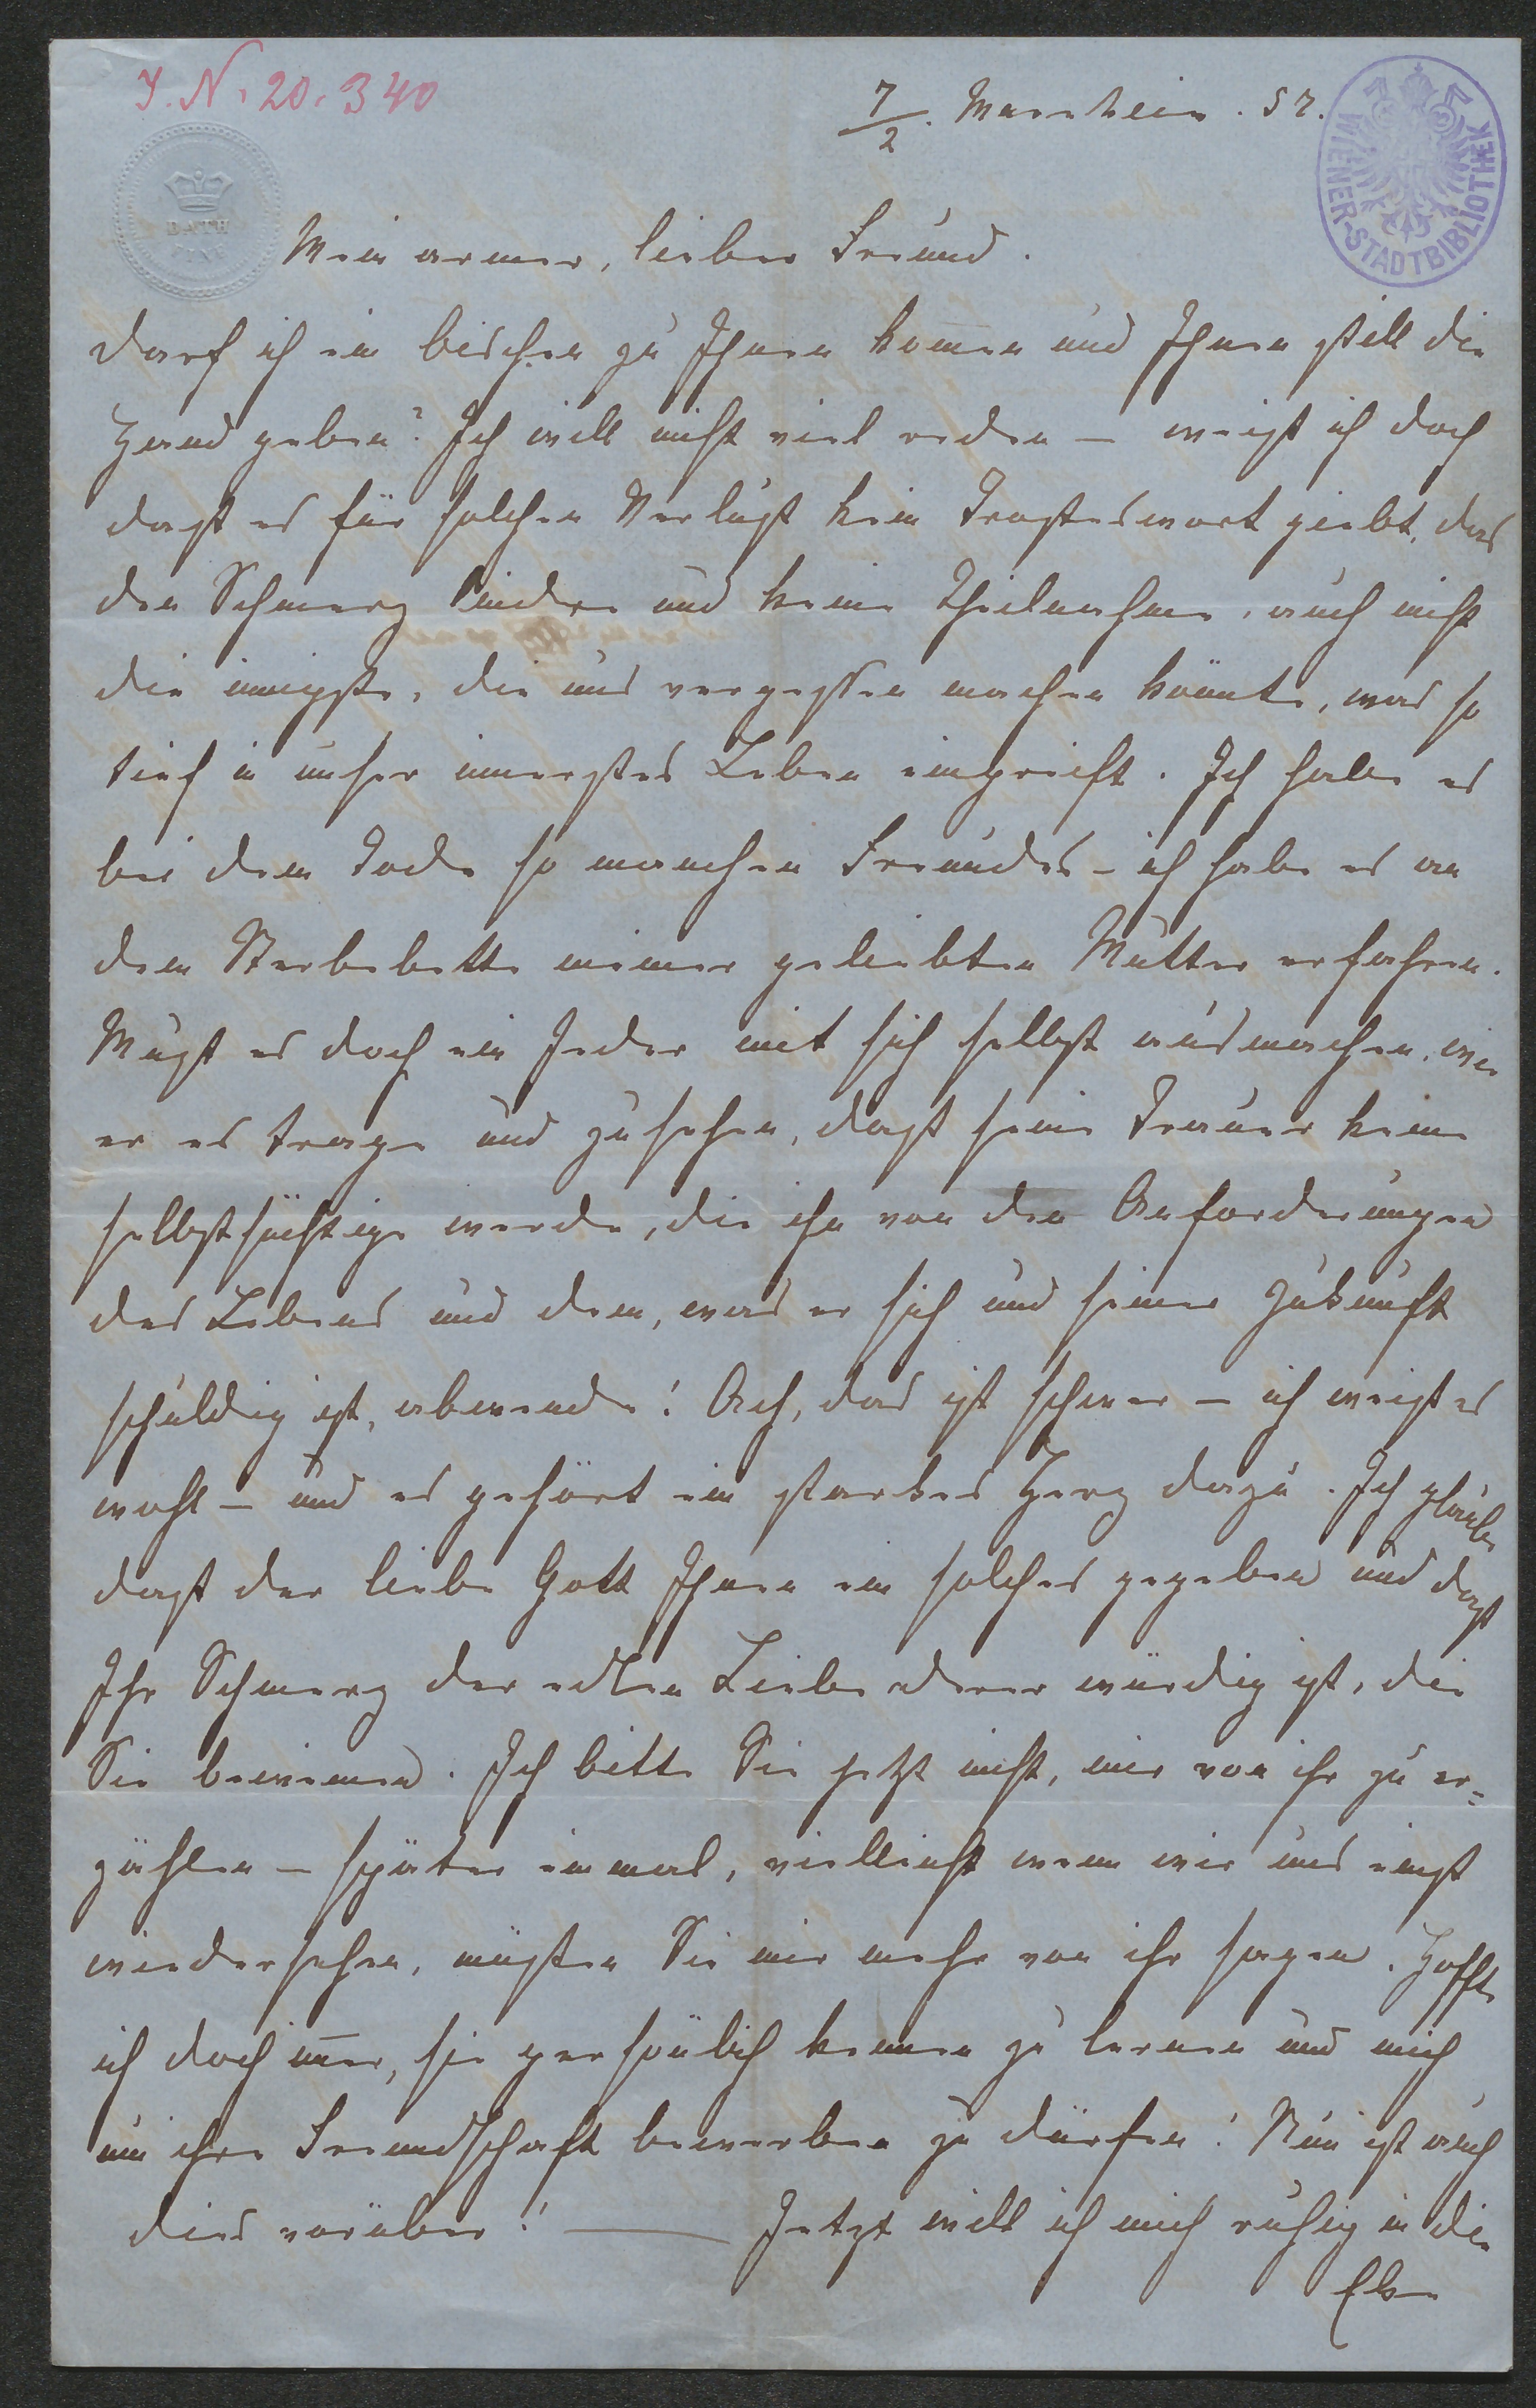 J. N. 20.340
7/2. Mannheim. 57.
WIENER-STADTBIBLIOTHEK
BATH
Mein armer, lieber Freund.
darf ich ein bischen zu Ihnen kom̅en und Ihnen still die
Hand geben? Ich will nicht viel reden – weißt ich doch
daßt es für solchen Verlußt kein Trosteswort giebt, das
den Schmerz lindre und keine Theilnahme, auch nicht
die innigste, die uns vergessen machen könnte, was so
tief in unser innerstes Leben eingreift. Ich habe es
bei dem Tode so manchen Freundes – ich habe es an
dem Sterbebette meiner geliebten Mutter erfahren.
Mußt es doch ein Jeder mit sich selbst ausmachen, wie
er es trage und zusehen, daßt seine Trauer keine
selbstsüchtige werde, die ihn von den Anforderungen
des Lebens und dem, was er sich und seiner Zukunft
schuldig ist, abwende! Ach, das ist schwer – ich weißt es
wohl – und es gehört ein starkes Herz dazu. Ich glaube
daßt der liebe Gott Ihnen ein solches gegeben und daßt
Ihr Schmerz der edlen Liebe derer würdig ist, die
Sie beweinen. Ich bitte Sie jetzt nicht, mir von ihr zu er=
zählen – später einmal, vielleicht wenn wir uns einst
wiedersehen, müßten Sie mir mehr von ihr sagen. Hoffte
ich doch im̅er, sie persönlich kennen zu lernen und mich
um ihre Freundschaft bewerben zu dürfen! Nun ist auch
dies vorüber! — Jetzt will ich mich ruhig in die